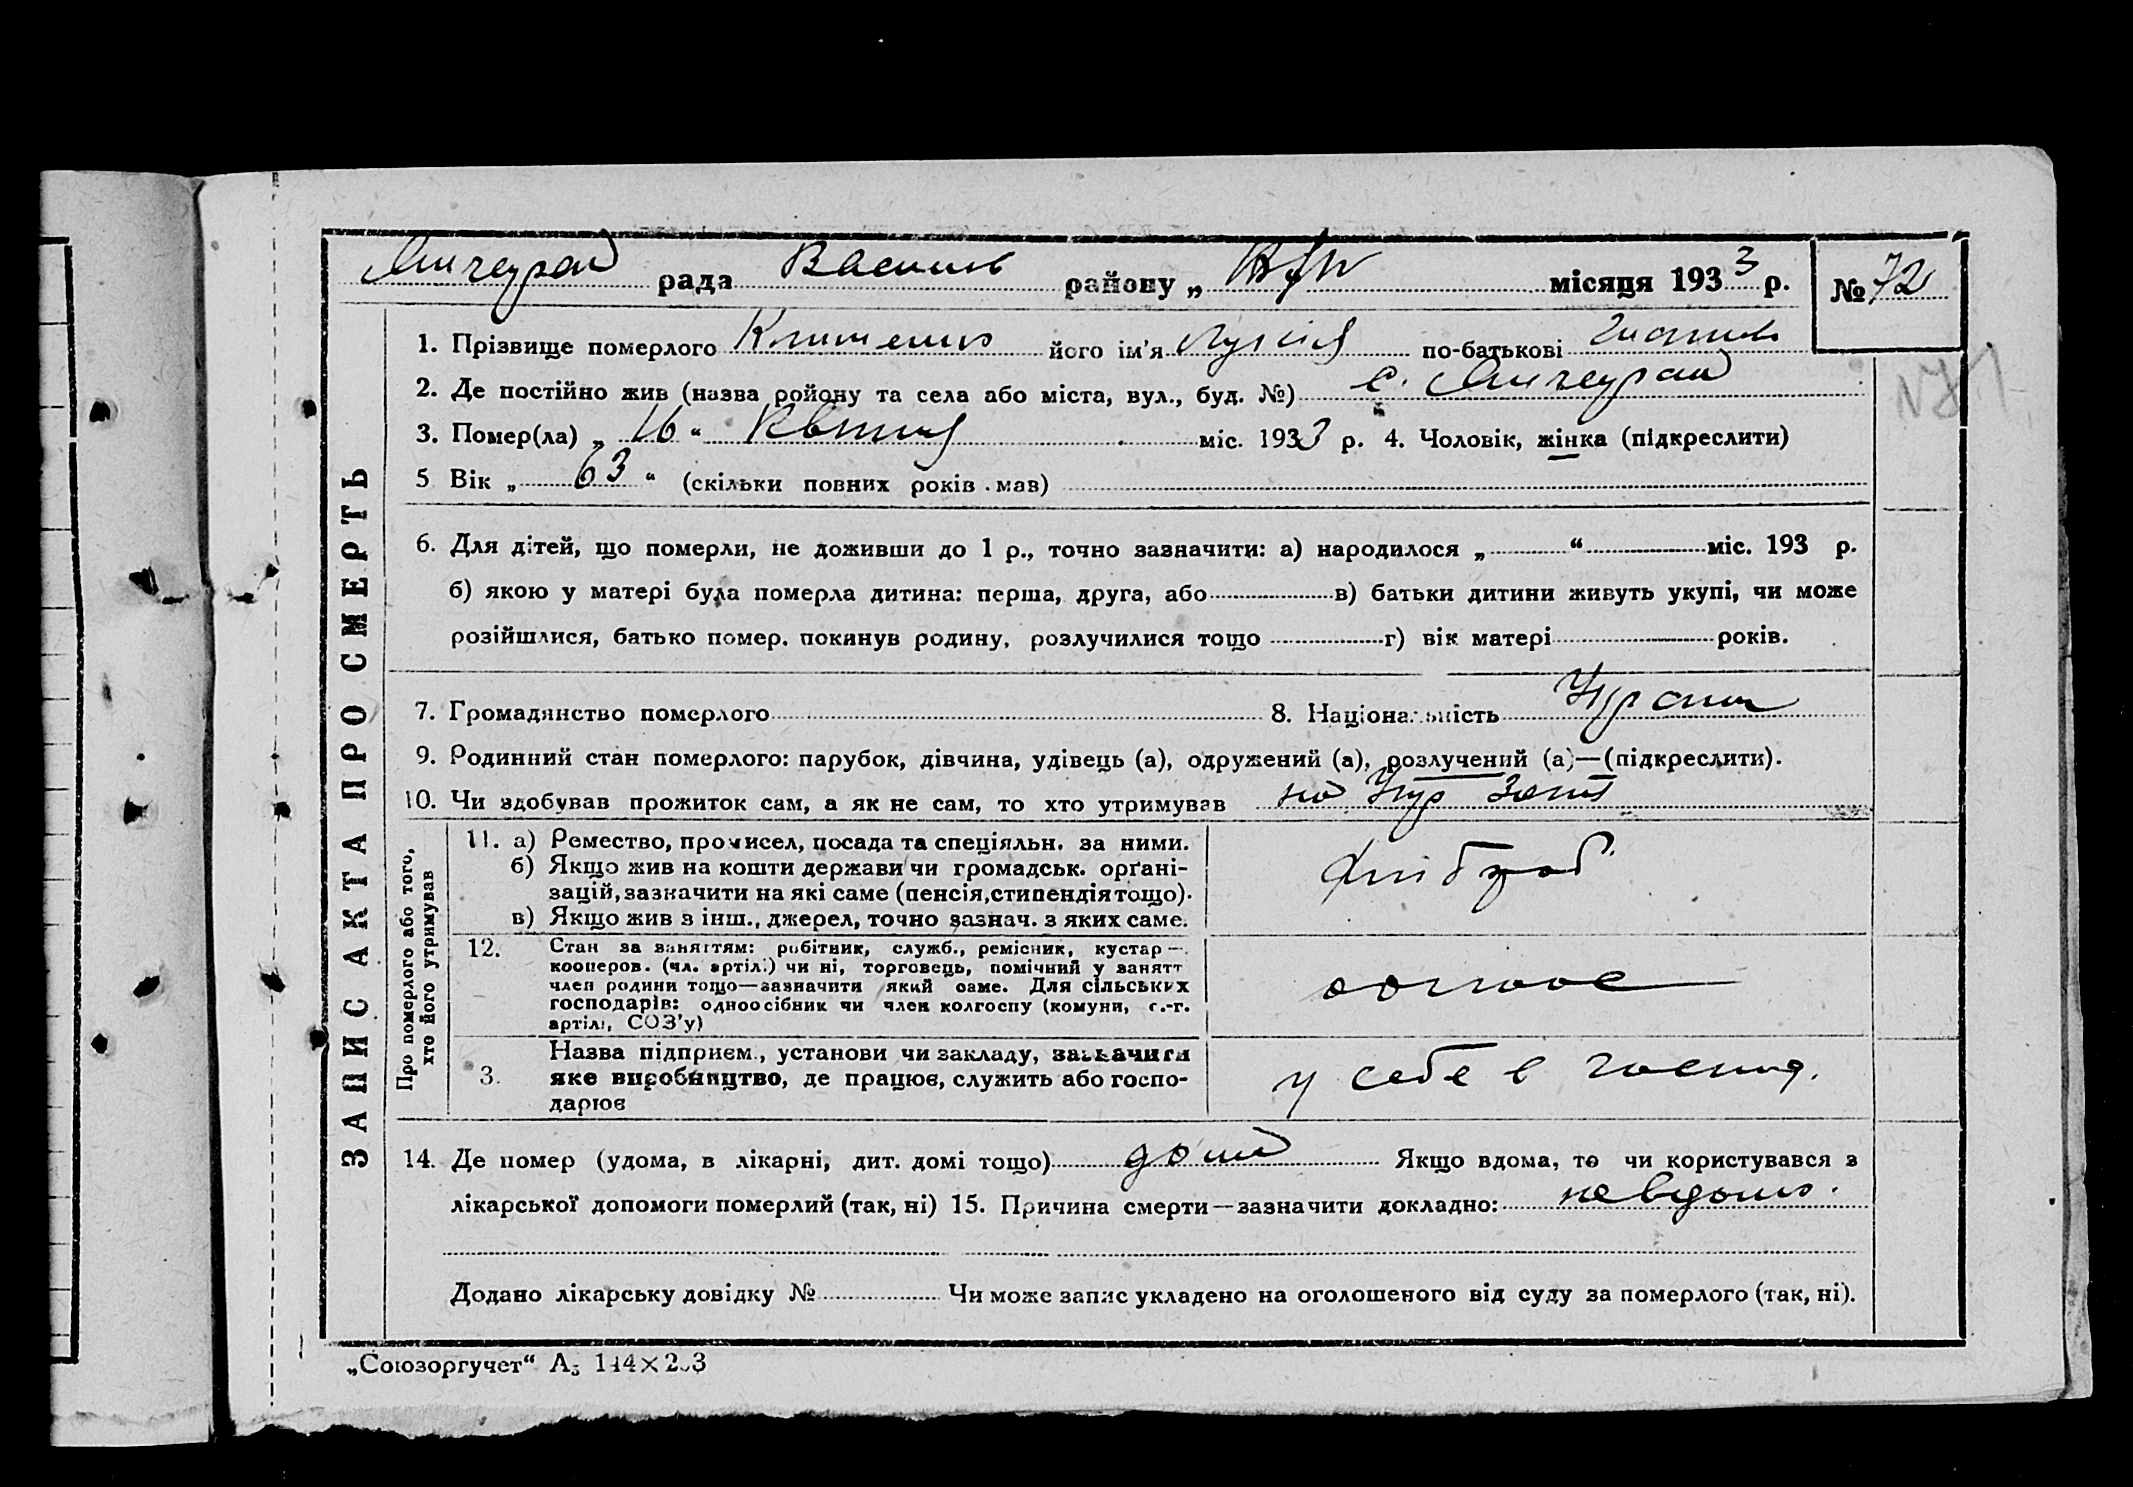 рада Васильк району „ місяця 1933 р. № 72
1. Прізвище померлого Клименко його ім'я по-батькові
2. Де постійно жив (назва ройону та села або міста, вул., буд. №) с.
3. Помер(ла) „16“ Квітня міс. 1933 р. 4. Чоловік, жінка (підкреслити)
5 Вік „63“ (скільки повних років мав)
6. Для дітей, що померли, не доживши до 1 р., точно зазначити: а) народилося „ “ міс. 193 р.
б) якою у матері була померла дитина: перша, друга, або в) батьки дитини живуть укупі, чи може
розійшлися, батько помер, покинув родину, розлучилися тощо г) вік матері років.
7. Громадянство померлого 8. Національність Україн
9. Родинний стан померлого: парубок, дівчина, удівець (а), одружений (а), розлучений (а)—(підкреслити).
10. Чи здобував прожиток сам, а як не сам, то хто утримував
ЗАПИС АКТА ПРО СМЕРТЬ
Про померлого або того,
хто його утримував
11. а) Ремество, промисел, посада та спеціяльн. за ними.
б) Якщо жив на кошти держави чи громадськ. орґані-
зацій, зазначити на які саме (пенсія, стипендія тощо).
в) Якщо жив з інш., джерел, точно зазнач. з яких саме.
хлібороб
12. Стан за заняттям: робітник, служб., ремісник, кустар —
кооперов. (чл. артіл.) чи ні, торговець, помічний у занятт
член родини тощо—зазначити який саме. Для сільських
господарів: одноосібник чи член колгоспу (комуни, с.-г.
артілі, СОЗ'у)
3. Назва підприєм., установи чи закладу, зазначити
яке виробництво, де працює, служить або госпо-
дарює
у себе в господ.
14. Де помер (удома, в лікарні, дит. домі тощо) дома Якщо вдома, то чи користувався з
лікарської допомоги померлий (так, ні) 15. Причина смерти—зазначити докладно: невідомо.
Додано лікарську довідку № Чи може запис укладено на оголошеного від суду за померлого (так, ні).
„Союзоргучет“ А5 144×203